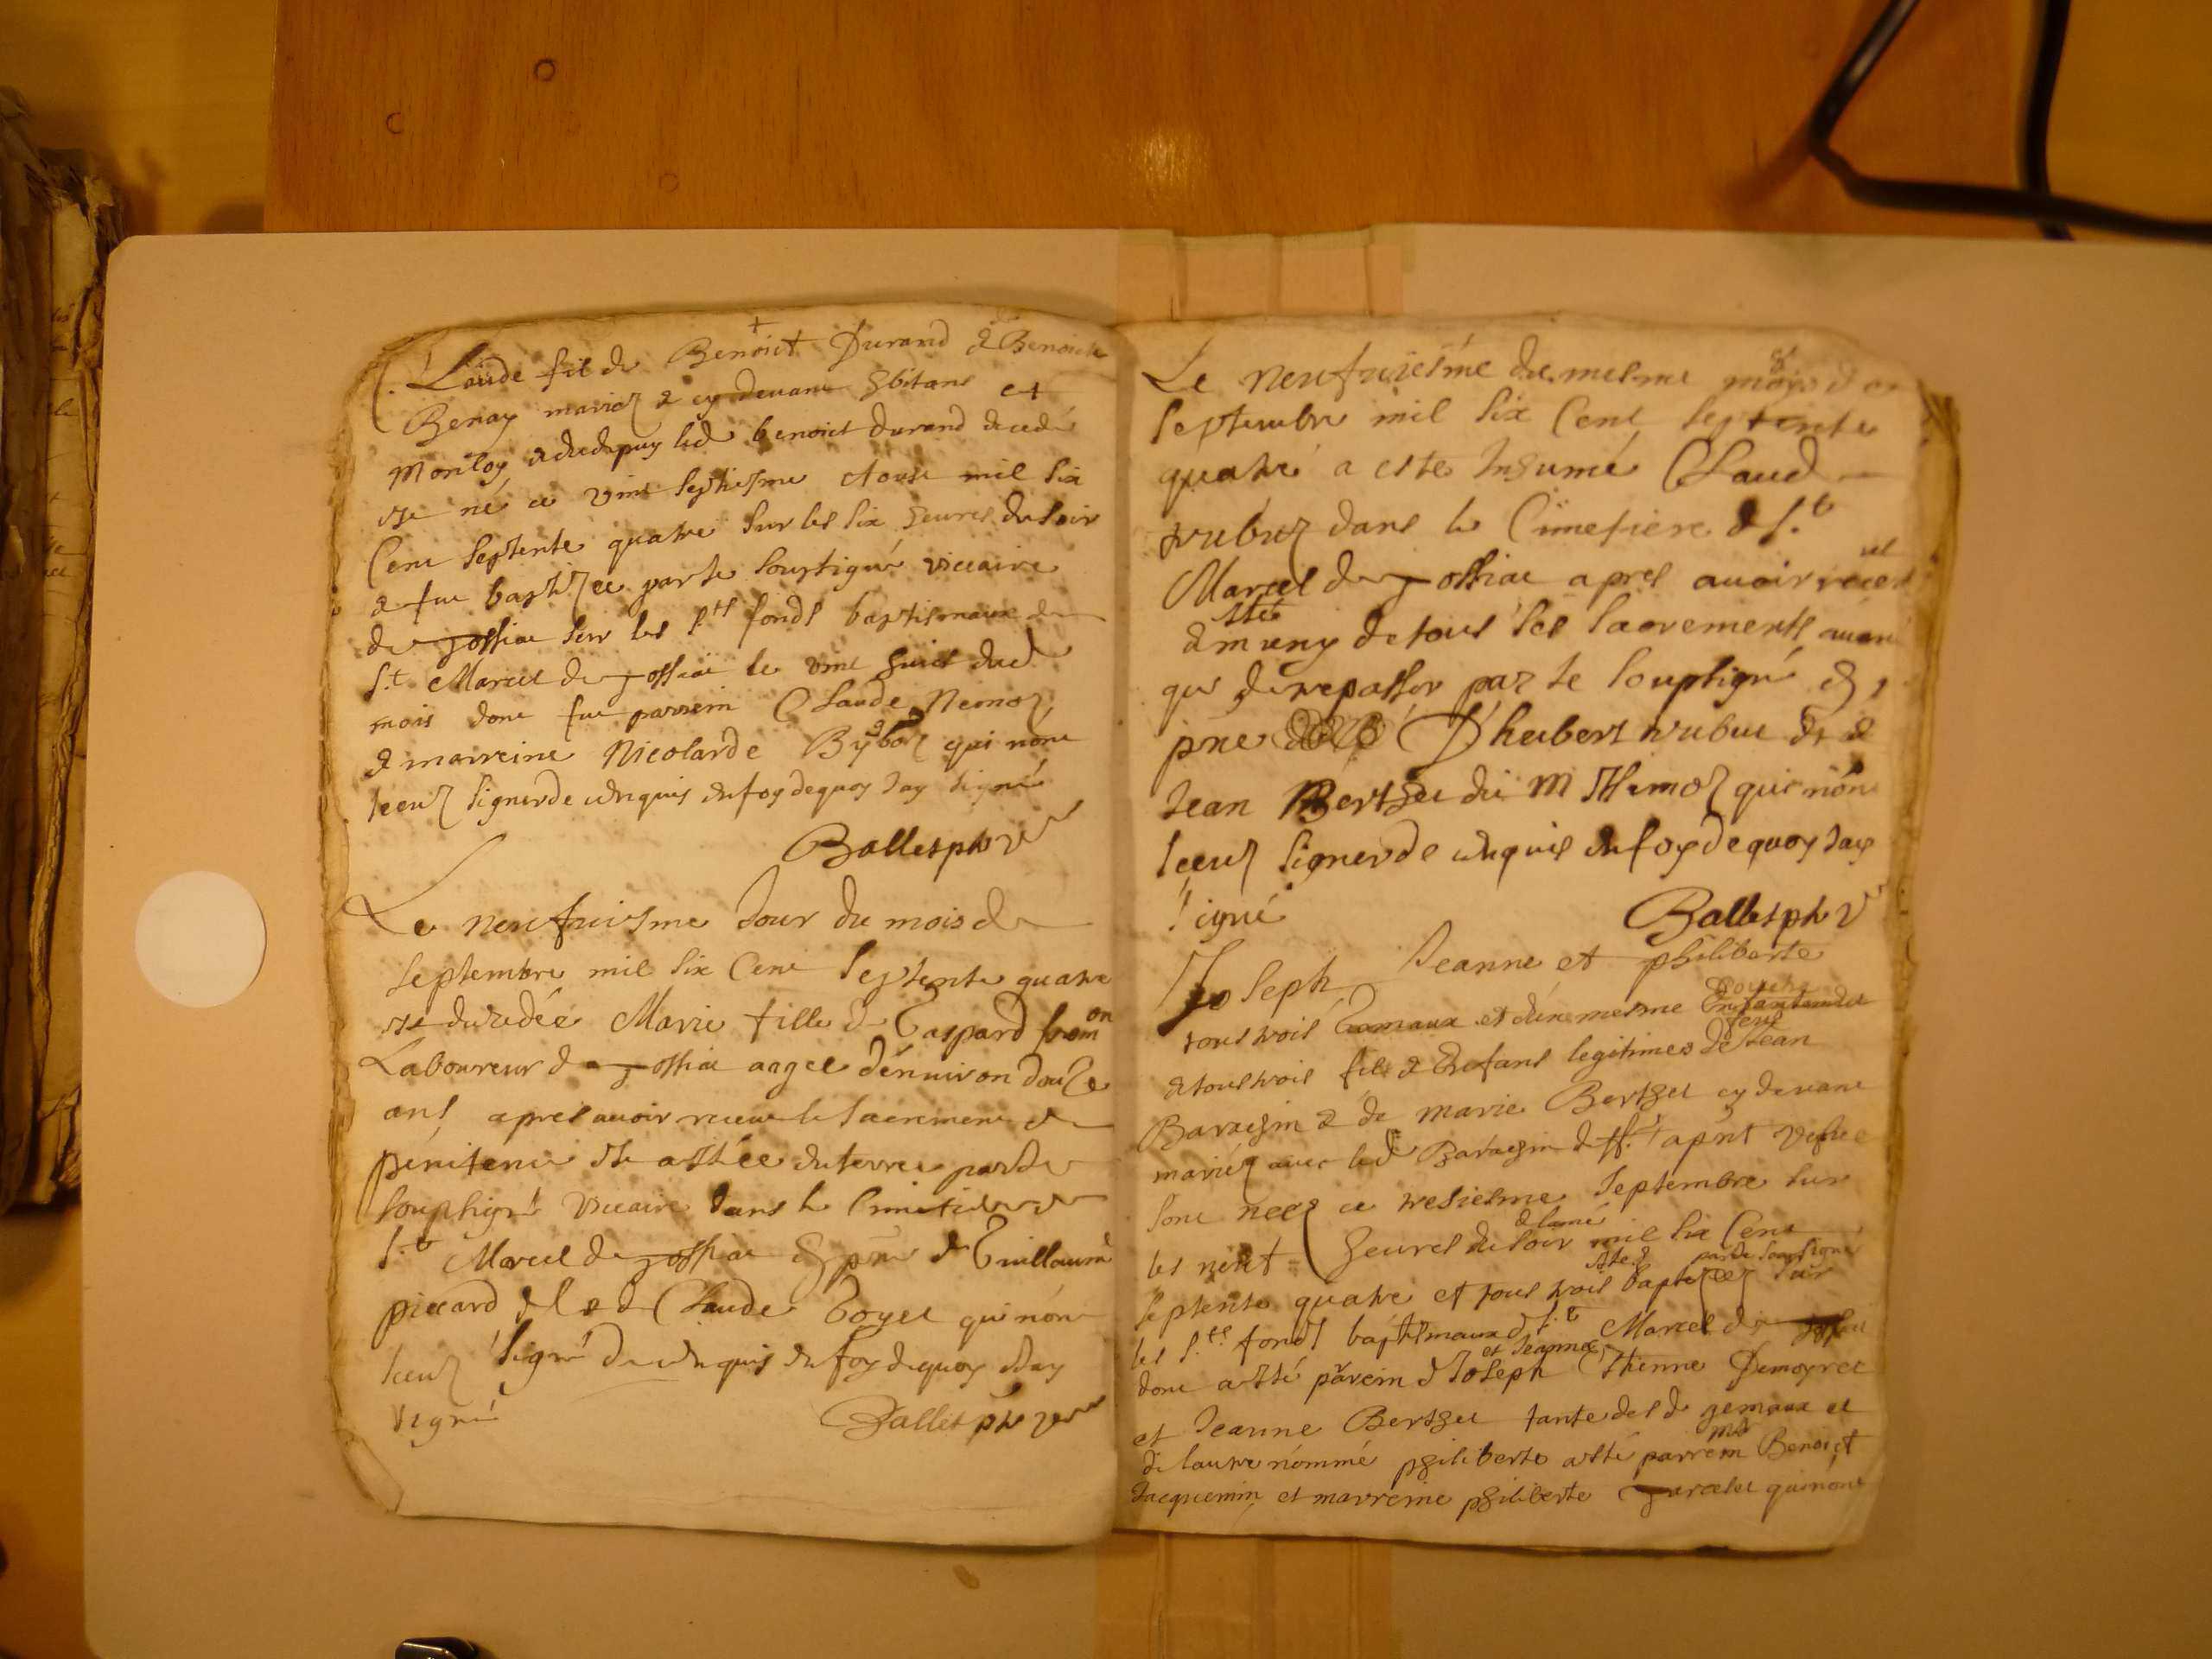 Claude fil de Benoict Durand & Benoicte
Benay mariez & cy devant habitans et
Monloy decede puy led benoict durand decedé
est né ce vint septiesme Aoust mil six
Cent septente quatre sur les six heures du soir
& fut baptizee par le soupsigné viccaire
de Jossiat sur les S.ts fonds baptismaux de
S.t Marcel de Jossiat le vint huict dud
mois dont fut parrein Claude Nemoz
& marreine Nicolarde qui nont
sceuz signer de ce enquis en foy de quoy Jay signé
Ballet ptre v
Le neufuiesme Jour du mois de
septembre mil six Cent septente quatre
est decedée Marie fille de Gaspard
Laboureur de Jossiat aagee d'environ douze
ans apres avoir receut le sacrement de
pénitence et a estée enterree par le
soupsigné viccaire dans le Cimetiere de
S.t Marcel de Jossiat En pñce de Guillaume
piccard & de Claude Goyet qui nont
sceuz signé de ce enquis en foy de quoy Jay
signé
Ballet ptre v
Le neufuiesme du mesme moys de
septembre mil six Cent septente
quatre a este Inhumé Claud
trubuz dans le Cimetiere de S.t
Marcel de Jossiat apres avoir receu
& muny de tous les sacrements avant
que de trepasser par le soupsigné En
pñce D'hubert trubut & de
Jean Berthet du M qui nont
sceuz signer de ce enquis en foy de quoy Jay
signé
Ballet ptre v
Joseph Jeanne et philiberte
tous trois Gemaux et d'une mesme
& tous trois fils & Enfans legitimes de feu Jean
Baraghin & de marie Berthet cy devant
mariez avec led Baraghin deff.t apñt vefve
sont neez ce tresiesme septembre sur
les neuf heures du soir mil six Cent
septente quatre et tous trois esté baptizeez par le soussigné sur
les S.ts fonds baptismaux de S.t Marcel de Jossiat
dont a esté parrein de Joseph et Jeanne Ethienne Demoyret
et Jeanne Berthet tante desd gemaux et
de lautre nómmé philiberte a esté parrein Benoict
Jacquemin et marreine philiberte qui nont